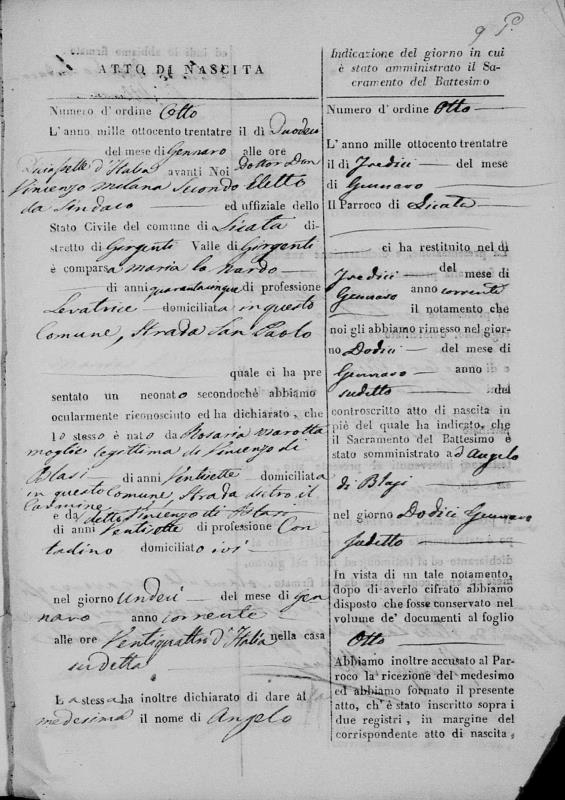 9 P.
ATTO DI NASCITA
Numero d' ordine Otto
L' anno mille ottocento trentatre il di Duodeci
del mese di Gennaro alle ore
d'Italia avanti Noi Dottor Don
Vincenzo Milana Secondo Eletto
da Sindaco ed uffiziale dello
Stato Civile del comune di Licata di-
stretto di Girgenti Valle di Girgenti
è comparsa Maria lo Nardo
di anni quarantacinque di professione
Levatrice domiciliata in questo
Comune, Strada San Paolo
quale ci ha pre
sentato un neonato secondochè abbiamo
ocularmente riconosciuto ed ha dichiarato, che
lo stesso è nato da Rosaria Marotta
moglie legittima di Vincenzo di
Blasi di anni Ventisette domiciliata
in questo Comune Strada dietro il
Carmine
e da detto Vincenzo di Blasi
di anni Ventisette di professione Con
tadino domiciliato ivi
nel giorno Undeci del mese di Gen
naro anno corrente
alle ore Ventiquattro d'Italia nella casa
sudetta
La stessa ha inoltre dichiarato di dare al
medesima il nome di Angelo
Indicazione del giorno in cui
è stato amministrato il Sa-
cramento del Battesimo
Numero d' ordine Otto
L' anno mille ottocento trentatre
il di Tredici del mese
di Gennaro
Il Parroco di Licata
ci ha restituito nel di
Tredici del mese di
Gennaro anno corrente
il notamento che
noi gli abbiamo rimesso nel gior-
no Dodici del mese di
Gennaro anno
sudetto del
controscritto atto di nascita in
piè del quale ha indicato, che
il Sacramento del Battesimo è
stato somministrato ad Angelo
di Blasi
nel giorno Dodici Gennaro
sudetto
In vista di un tale notamento,
dopo di averlo cifrato abbiamo
disposto che fosse conservato nel
volume de' documenti al foglio
Otto
Abbiamo inoltre accusato al Par-
roco la ricezione del medesimo
ed abbiamo formato il presente
atto, ch' è stato inscritto sopra i
due registri, in margine del
corrispondente atto di nascita,